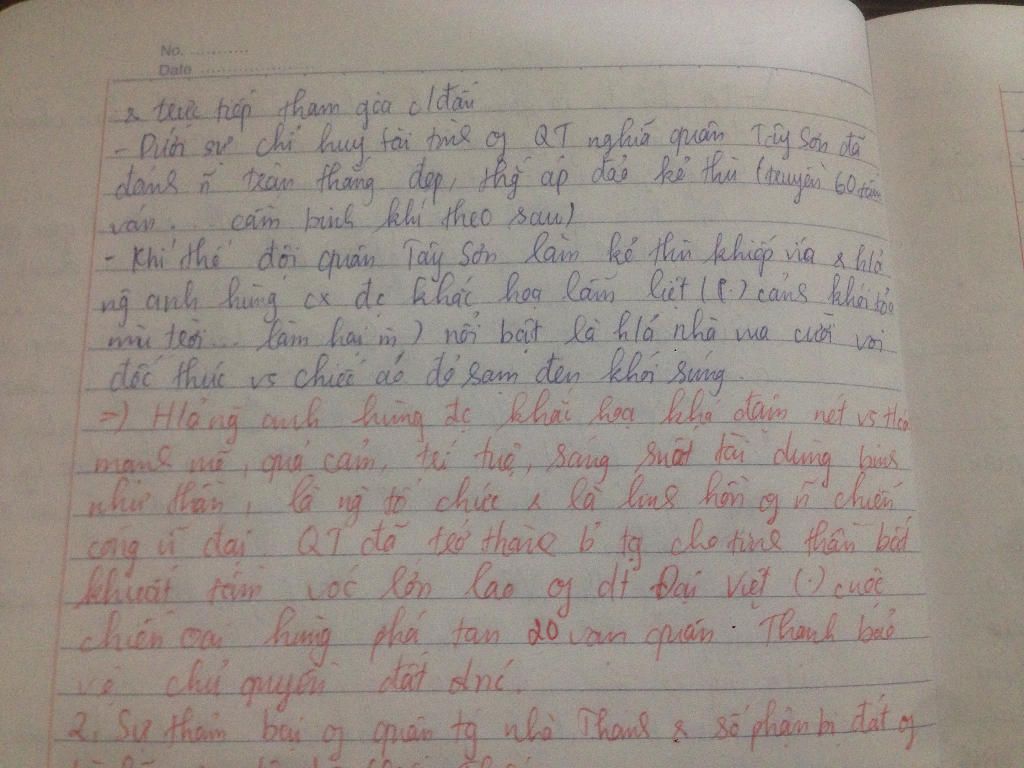 No. ............
Date .....................
& trực tiếp tham gia c/đấu
- Dưới sự chỉ huy tài tình of QT nghĩa quân Tây Sơn đã
đánh ~n trận thắng đẹp, thg áp đảo kẻ thù (truyền 60 tấm
ván... cầm binh khí theo sau)
- Khí thế đội quân Tây Sơn làm kẻ thù khiếp vía & h/ả
ng anh hùng cx đc khắc hoạ lẫm liệt (.) cảnh khói tỏa
mù trời... làm hại m) nổi bật là h/ả nhà vua cưỡi voi
đốc thúc vs chiếc áo đỏ sạm đen khói súng.
=> H/ả ng anh hùng đc khắc hoạ khá đậm nét vs
mạnh mẽ, quả cảm, trí tuệ, sáng suốt tài dùng binh
như thần, là ng tổ chức & là linh hồn of ~n chiến
công vĩ đại. QT đã trở thành b tg cho tinh thần bất
khuất tầm vóc lớn lao of dt Đại Việt (.) cuộc
chiến oai hùng phá tan 20 vạn quân Thanh bảo
vệ chủ quyền đất nc.
2. Sự thảm bại of quân tg nhà Thanh & số phận bi đát of